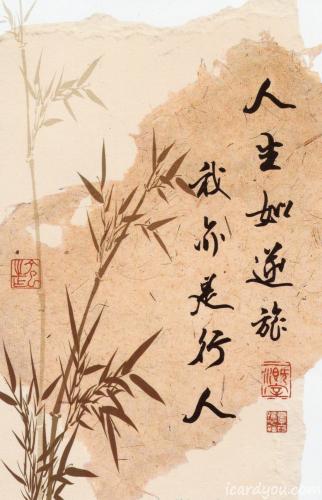 人生如逆旅
我亦是行人
icardyou.com